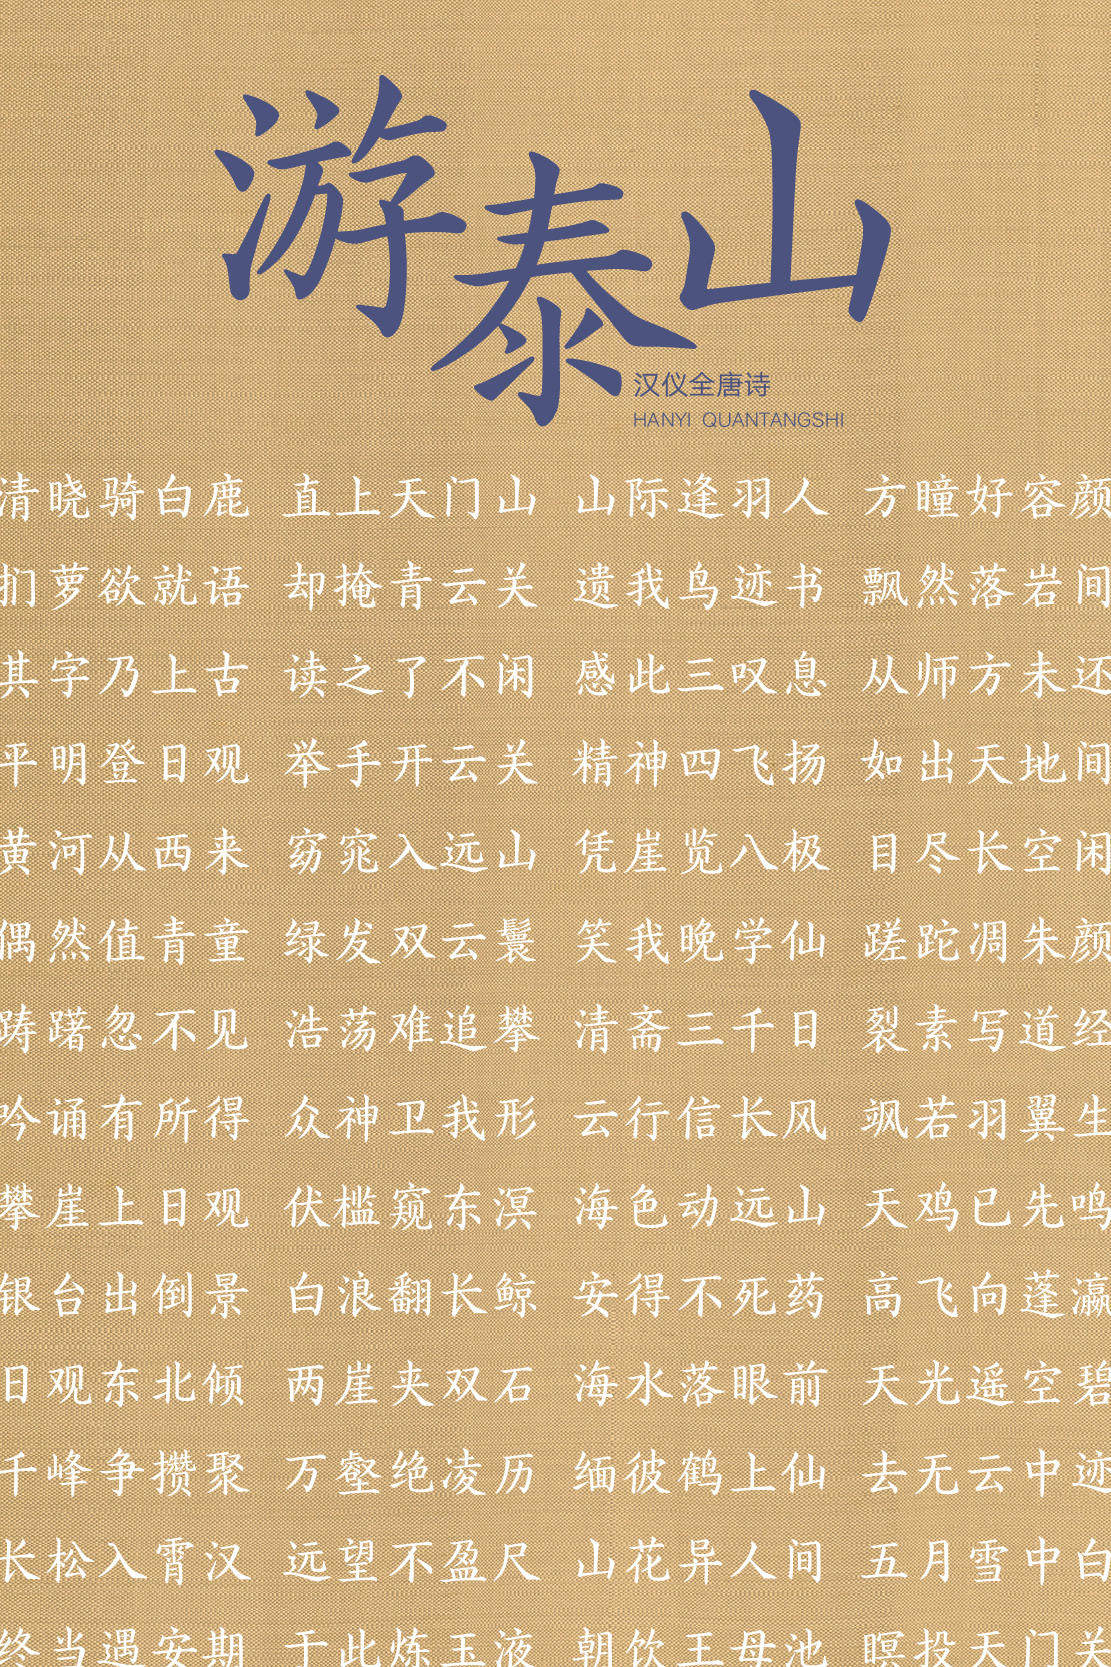 游泰山
汉仪全唐诗
HANYI QUANTANGSHI
清晓骑白鹿 直上天门山 山际逢羽人 方瞳好容颜
扪萝欲就语 却掩青云关 遗我鸟迹书 飘然落岩间
其字乃上古 读之了不闲 感此三叹息 从师方未还
平明登日观 举手开云关 精神四飞扬 如出天地间
黄河从西来 窈窕入远山 凭崖览八极 目尽长空闲
偶然值青童 绿发双云鬟 笑我晚学仙 蹉跎凋朱颜
踌躇忽不见 浩荡难追攀 清斋三千日 裂素写道经
吟诵有所得 众神卫我形 云行信长风 飒若羽翼生
攀崖上日观 伏槛窥东溟 海色动远山 天鸡已先鸣
银台出倒景 白浪翻长鲸 安得不死药 高飞向蓬瀛
日观东北倾 两崖夹双石 海水落眼前 天光遥空碧
千峰争攒聚 万壑绝凌历 缅彼鹤上仙 去无云中迹
长松入霄汉 远望不盈尺 山花异人间 五月雪中白
终当遇安期 于此炼玉液 朝饮王母池 暝投天门关